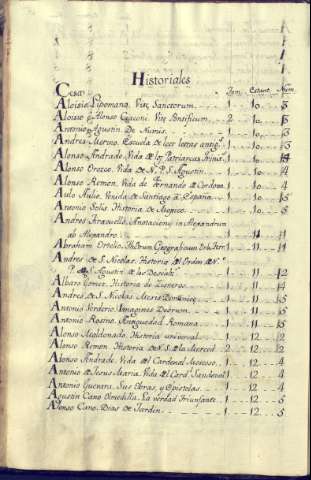 Historiales
Tom. Estant. Num.
Cesar
Aloisio Lipomano. Vite Sanctorum. 1 10 3
Aloisio Alonso Ciaconi. Vite Pontificum 2 10 3
Antonio Agustin. De Numis. 1 10 3
Andres Merino. Escuela de leer letras antig. 1 10 3
Alonso Andrade. Vida de los Patriarcas 1 10 4
Alonso Orozco. Vida de N. P. S. Agustin. 1 10 4
Alonso Remon. Vida de Fernando de Cordova 1 10 4
Aulo Aulio. Venida de Santiago à España. 1 10 5
Antonio Solis. Historia de Mexico. 1 10 5
Andres Anotacion in Alexandrum
ab Alexandro. 1 11 1
Abraham Ortelio. Geograficum 1 11 1
Andres de S. Nicolas. Historia del Orden de N.
P. S. Agustin de los Descalz. 1 11 2
Albaro Gomez. Historia de Zisneros. 1 11 4
Andres de S. Nicolas. 1 11 5
Antonio Verderio. Imagines Deorum. 1 11 5
Antonio Rosino. Antiguedad Romana. 1 11 5
Alonso Maldonado. Historia universal. 1 12 2
Alonso Remon. Historia de N. S. de la Merced. 2 12 2
Alonso Andrade. Vida del Cardenal Moscoso. 1 12 4
Antonio de Jesus Maria. Vida del Card. Sandoval 1 12 4
Antonio Guevara. Sus Obras, y Epistolas. 1 12 4
Agustin Cano Olmedilla. La verdad Triunfante. 1 12 5
Alonso Cano. Dias de Jardin. 1 12 5